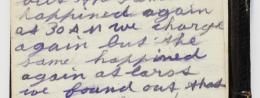 happined again
at 30 A M we charge
again but the
same happined
again at
we found out that